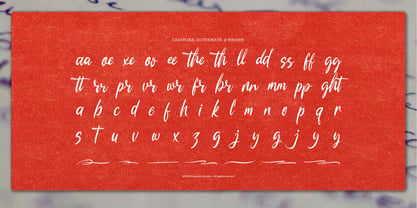 LIGATURE, ALTERNATE, & SWASH
aa oe xe oo ee the th ll dd ss ff gg
tt rr pr vr wr fr br nn mm pp ght
a b c d e f h i k l m n o p q r
s t u v w x z g j y g j y j y